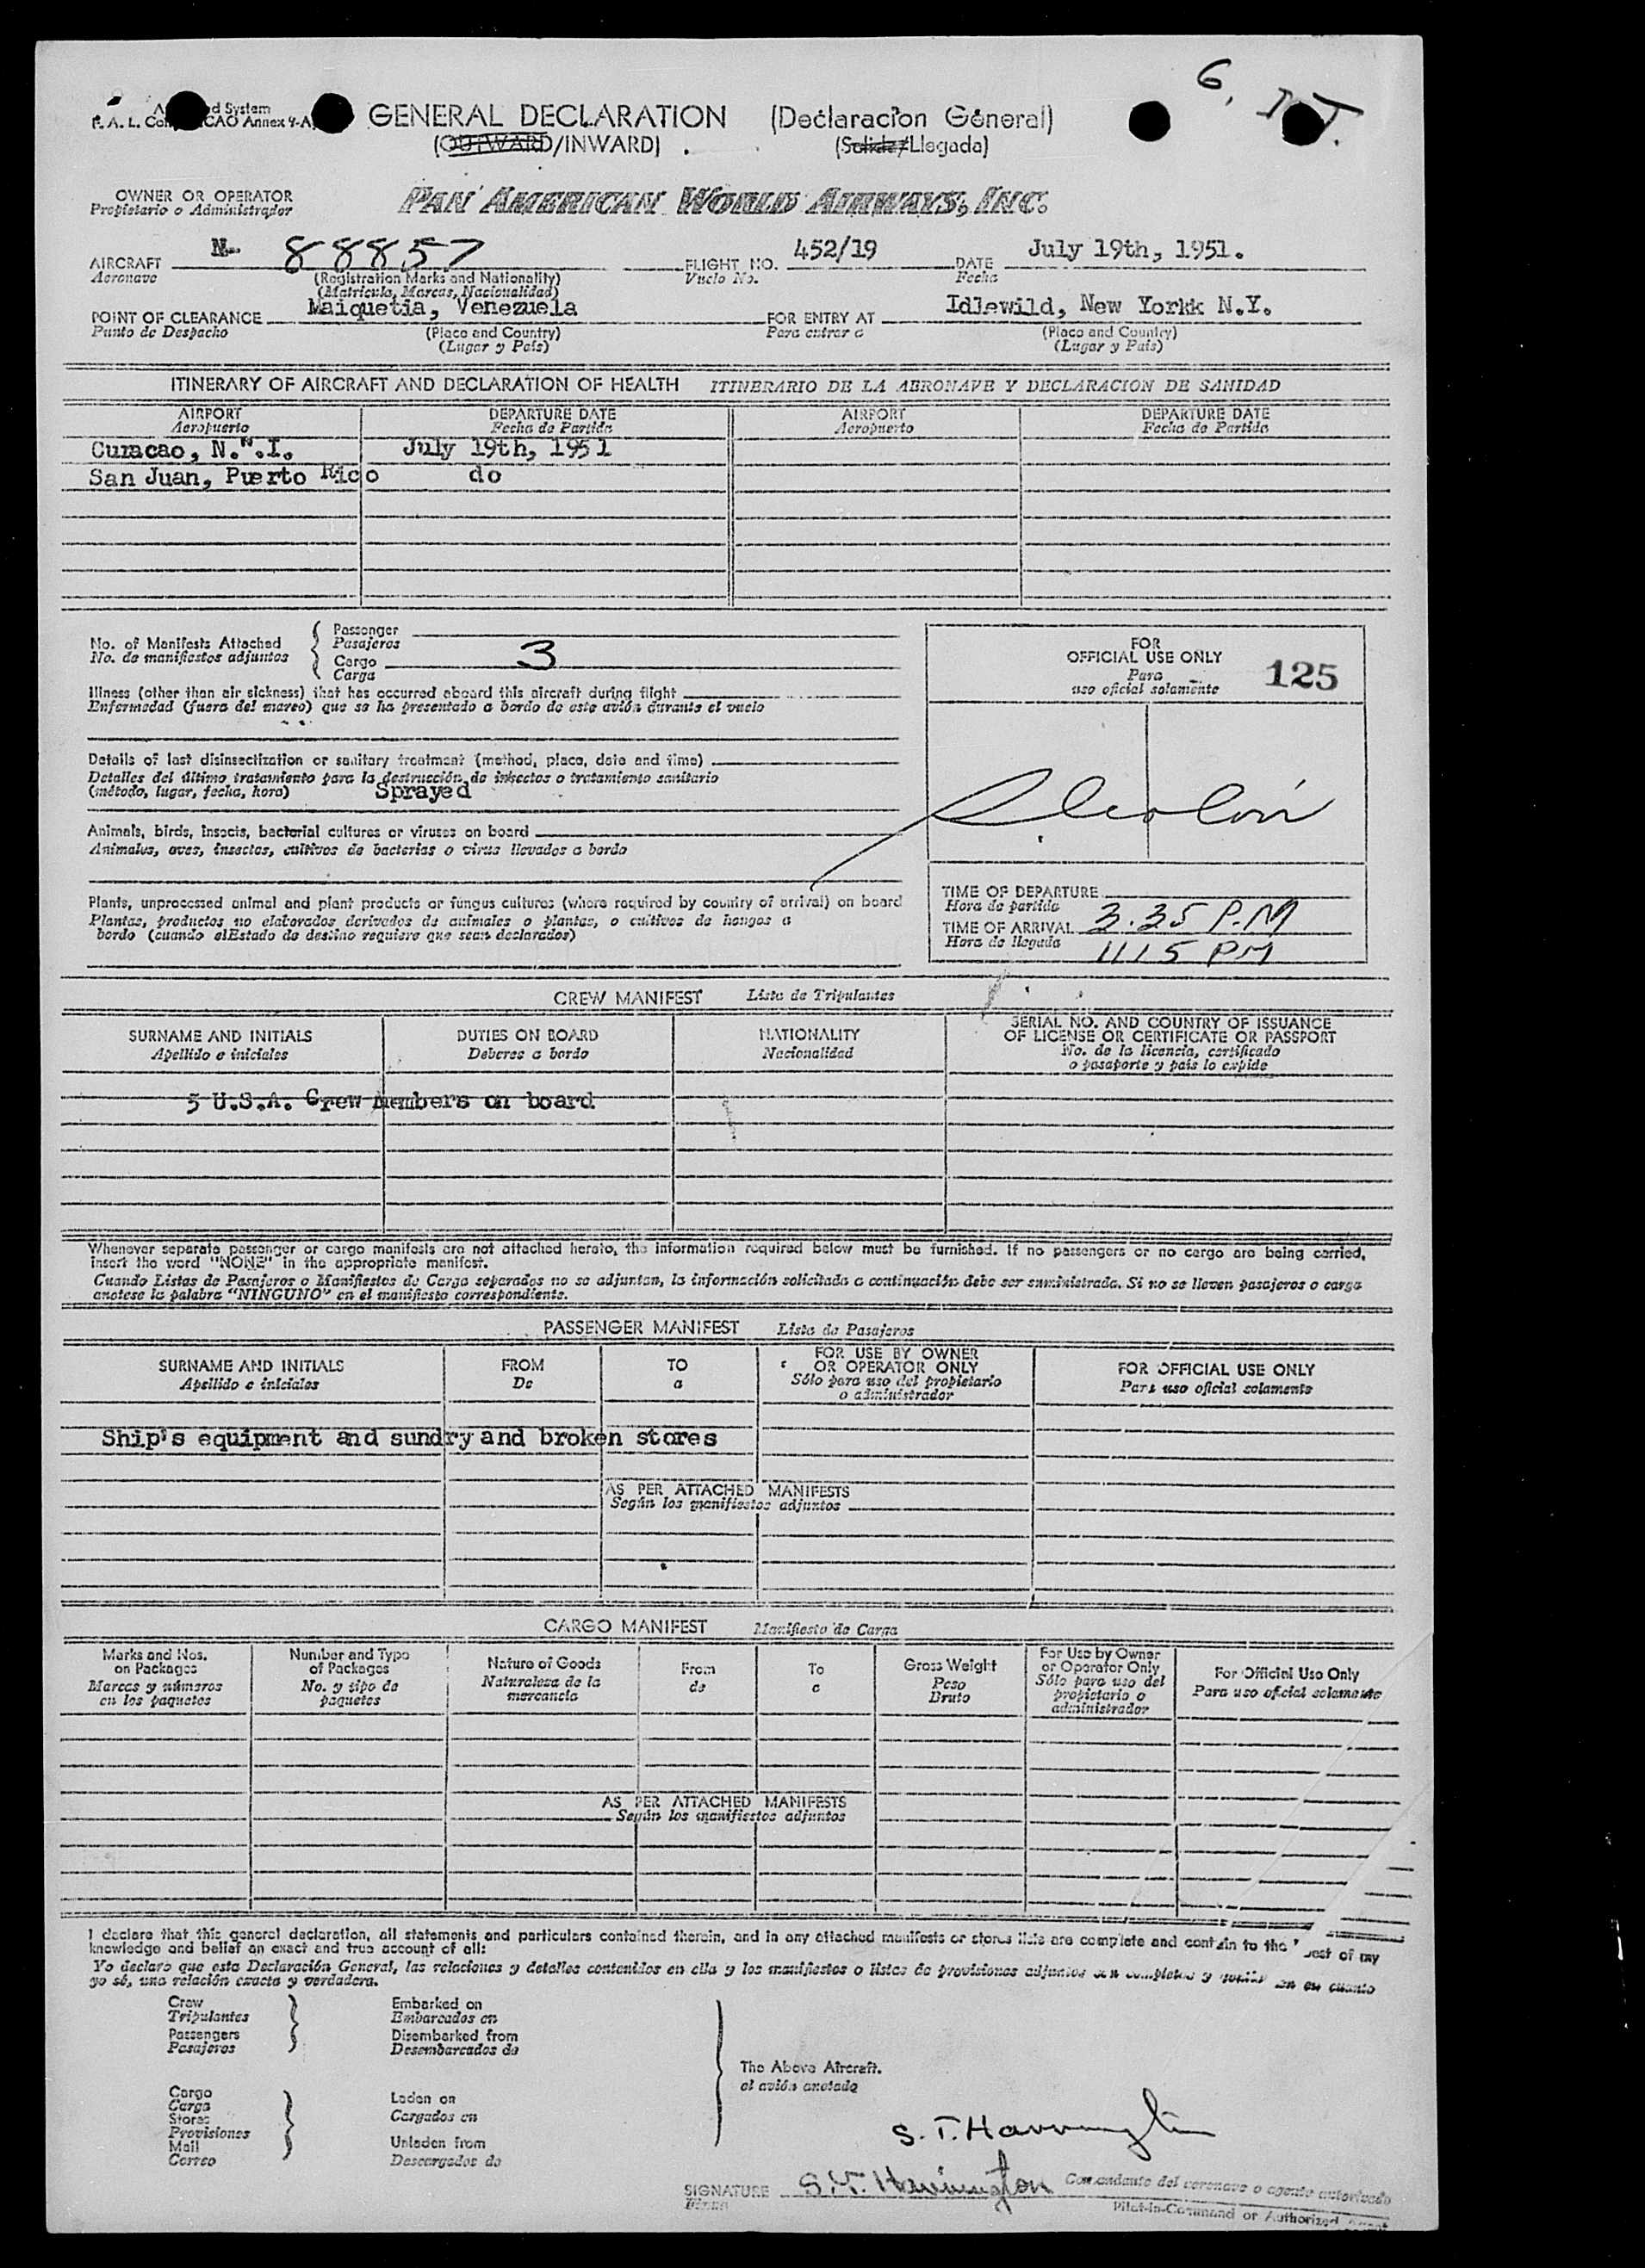 6.
d System
GENERAL DECLARATION (Declaración General)
(OUTWARD/INWARD) . (Salida/Llegada)
OWNER OR OPERATOR PAN AMERICAN WORLD AIRWAYS, INC.
Propietario o Administrador
AIRCRAFT N- 88857 FLIGHT NO. 452/19 DATE July 19th, 1951.
Aeronave (Registration Marks and Nationality) Vuelo No. Fecha
(Matricula, Marcas, Nacionalidad)
POINT OF CLEARANCE Maiquetia, Venezuela FOR ENTRY AT Idlewild, New Yorkk N.Y.
Punto de Despacho (Place and Country) Para entrar a (Place and Country)
(Lugar y País) (Lugar y País)
ITINERARY OF AIRCRAFT AND DECLARATION OF HEALTH ITINERARIO DE LA AERONAVE Y DECLARACION DE SANIDAD
AIRPORT DEPARTURE DATE AIRPORT DEPARTURE DATE
Aeropuerto Fecha de Partida Aeropuerto Fecha de Partida
Curacao, N.W.I. July 19th, 1951
San Juan, Puerto Rico do
No. of Manifests Attached Passenger
No. de manifiestos adjuntos Pasajeros
Cargo 3
Carga
Illness (other than air sickness) that has occurred aboard this aircraft during flight
Enfermedad (fuera del mareo) que se ha presentado a bordo de este avión durante el vuelo
Details of last disinsectization or sanitary treatment (method, place, date and time)
Detalles del último tratamiento para la destrucción de insectos o tratamiento sanitario
(método, lugar, fecha, hora) Sprayed
Animals, birds, insects, bacterial cultures or viruses on board
Animales, aves, insectos, cultivos de bacterias o virus llevados a bordo
Plants, unprocessed animal and plant products or fungus cultures (where required by country of arrival) on board
Plantas, productos no elaborados derivados de animales o plantas, o cultivos de hongos a
bordo (cuando elEstado de destino requiere que sean declarados)
FOR
OFFICIAL USE ONLY 125
Para
uso oficial solamente
TIME OF DEPARTURE
Hora de partida 3.35 P.M
TIME OF ARRIVAL
Hora de llegada 1115 PM
CREW MANIFEST Lista de Tripulantes
SURNAME AND INITIALS DUTIES ON BOARD NATIONALITY SERIAL NO. AND COUNTRY OF ISSUANCE
OF LICENSE OR CERTIFICATE OR PASSPORT
Apellido e iniciales Deberes a bordo Nacionalidad No. de la licencia, certificado
o pasaporte y país lo expide
5 U.S.A. Crew members on board
Whenever separate passenger or cargo manifests are not attached hereto, the information required below must be furnished. If no passengers or no cargo are being carried,
insert the word "NONE" in the appropriate manifest.
Cuando Listas de Pasajeros o Manifiestos de Carga separados no se adjuntan, la información solicitada a continuación debe ser suministrada. Si no se lleven pasajeros o carga
anotese la palabra "NINGUNO" en el manifiesto correspondiente.
PASSENGER MANIFEST Lista de Pasajeros
SURNAME AND INITIALS FROM TO FOR USE BY OWNER FOR OFFICIAL USE ONLY
OR OPERATOR ONLY
Apellido e iniciales De a Sólo para uso del propietario Para uso oficial solamente
o administrador
Ship's equipment and sundry and broken stores
AS PER ATTACHED MANIFESTS
Según los manifiestos adjuntos
CARGO MANIFEST Manifiesto de Carga
Marks and Nos. Number and Type Nature of Goods From To Gross Weight For Use by Owner For Official Use Only
on Packages of Packages or Operator Only
Marcas y números No. y tipo de Naturaleza de la de a Peso Sólo para uso del Para uso oficial solamente
en los paquetes paquetes mercancía Bruto propietario o
administrador
AS PER ATTACHED MANIFESTS
Según los manifiestos adjuntos
I declare that this general declaration, all statements and particulars contained therein, and in any attached manifests or stores lists are complete and contain to the best of my
knowledge and belief an exact and true account of all:
Yo declaro que esta Declaración General, las relaciones y detalles contenidos en ella y los manifiestos o listas de provisiones adjuntos son completos y en cuanto
yo sé, una relación exacta y verdadera.
Crew Embarked on
Tripulantes Embarcados en
Passengers Disembarked from
Pasajeros Desembarcados de
The Above Aircraft.
el avión anotado
Cargo Laden on
Carga Cargados en
Stores
Provisiones
Mail Unladen from
Correo Descargados de
S.T. Harrington
SIGNATURE S.T. Harrington Comandante del aeronave o agente autorizado
Firma Pilot-in-Command or Authorized Agent